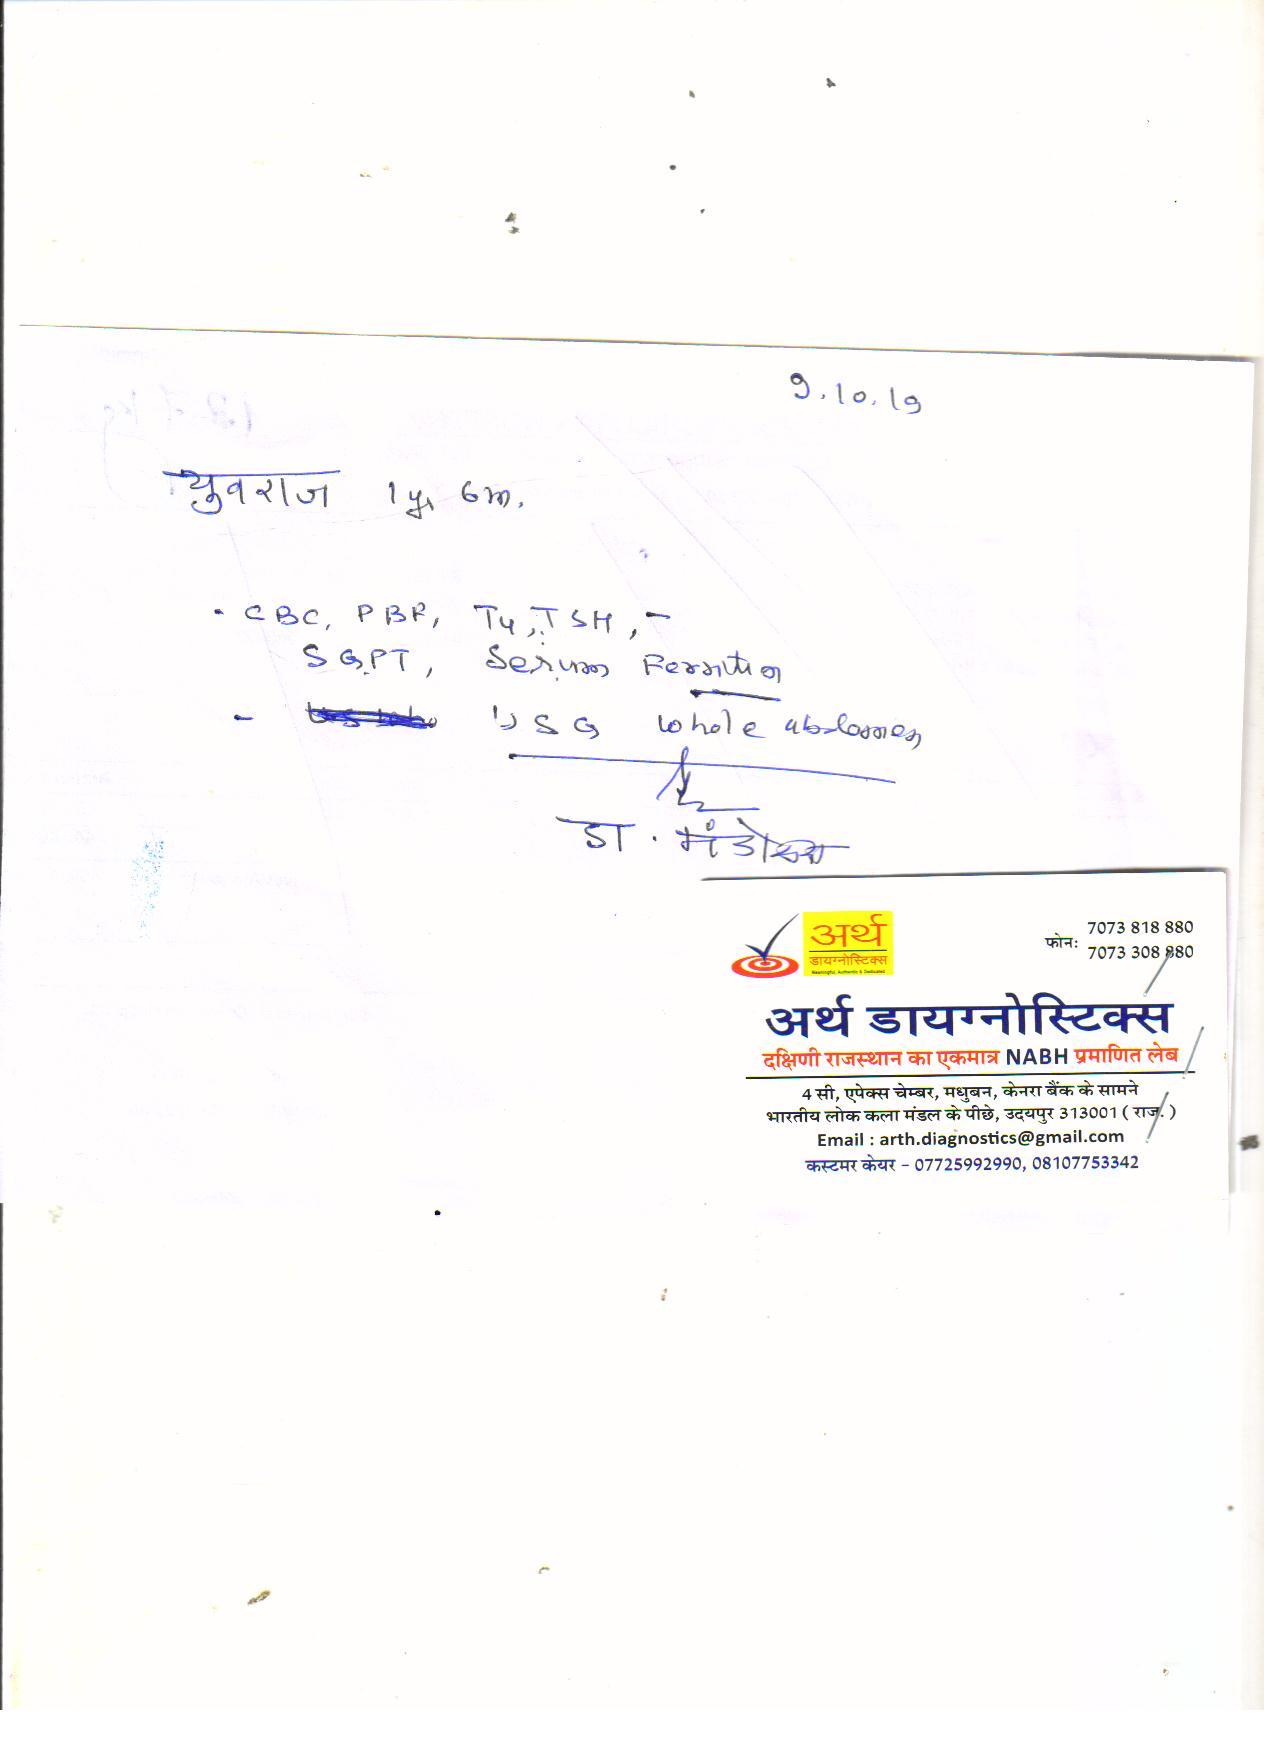 9.10.19
युवराज 1 yr 6m.
- CBC, PBF, T4, TSH, -
SGPT, Serum Ferritin
- USG whole abdomen
डा.
अर्थ
डायग्नोस्टिक्स
Meaningful, Authentic & Dedicated
फोन: 7073 818 880
7073 308 880
अर्थ डायग्नोस्टिक्स
दक्षिणी राजस्थान का एकमात्र NABH प्रमाणित लेब
4 सी, एपेक्स चेम्बर, मधुबन, केनरा बैंक के सामने
भारतीय लोक कला मंडल के पीछे, उदयपुर 313001 ( राज. )
Email : arth.diagnostics@gmail.com
कस्टमर केयर – 07725992990, 08107753342